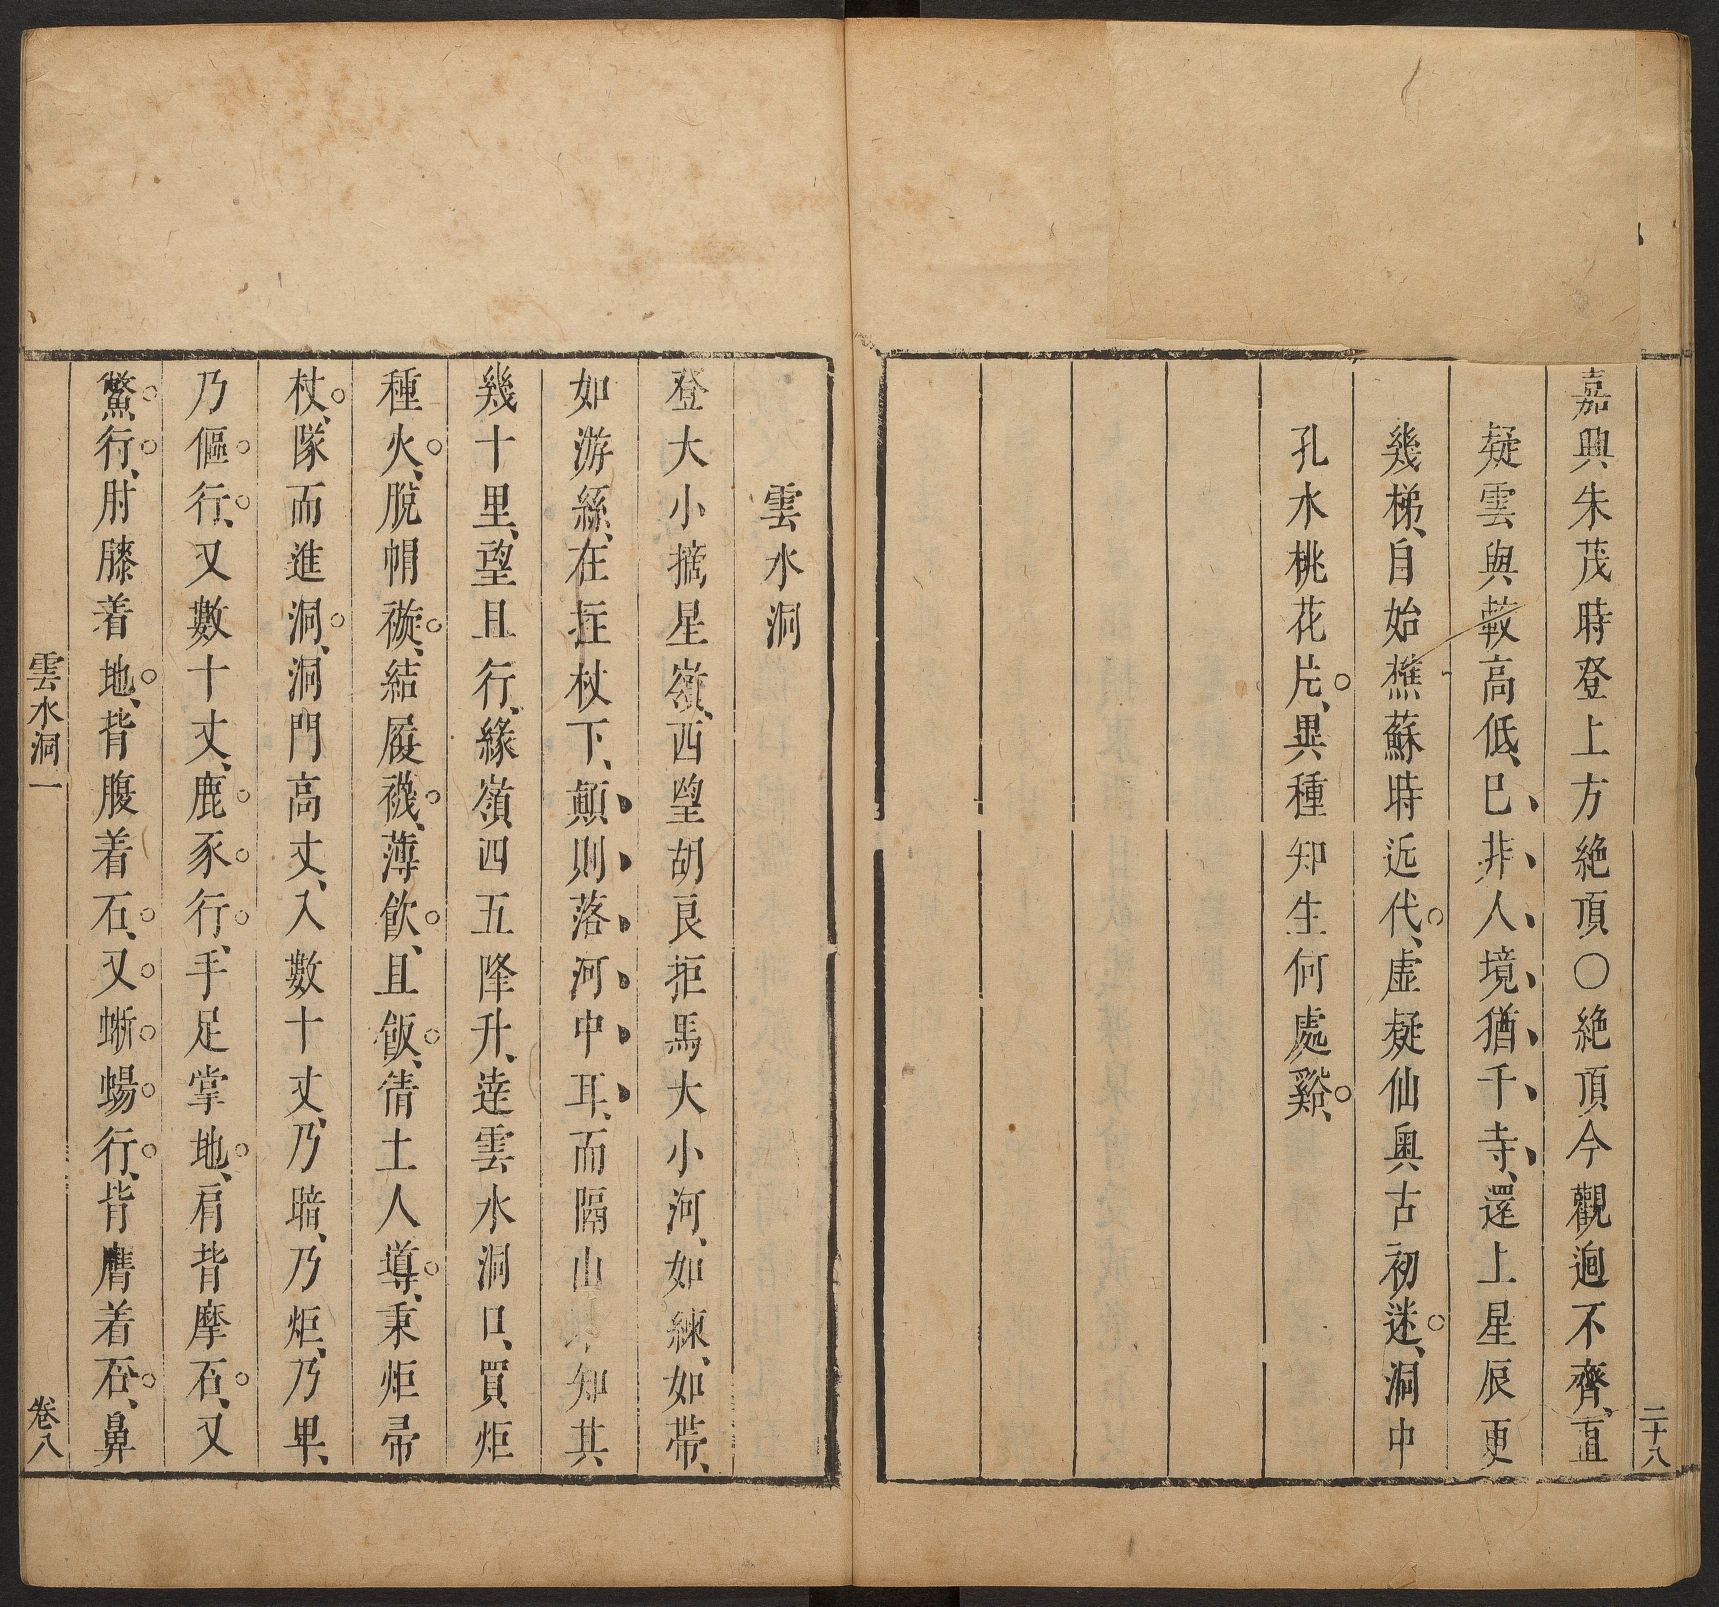 二十八
嘉興朱茂時登上方絶頂○絶頂今觀迥不齊、直
疑雲與高低、巳非人境猶千寺、還上星辰更
幾梯、自始樵蘇時近代、虛疑仙奧古初迷、洞中
孔水桃花片、異種知生何處谿、
雲水洞
登大小摘星嶺、西望胡良拒馬大小河、如練、如帶、
如游絲、在拄杖下、顛則落河中耳、而隔山知其
幾十里、望且行、緣嶺四五降升、達雲水洞口、買炬
種火、脫帽、結履襪、薄飲、且飯、倩土人導、秉炬帚
杖、隊而進洞、洞門高丈、入數十丈、乃暗、乃炬、乃卑、
乃傴行、又數十丈、鹿豕行、手足掌地、肩背摩石、又
鱉行、肘膝着地、背腹着石、又蜥蜴行、背膺着石、鼻
雲水洞一
卷八